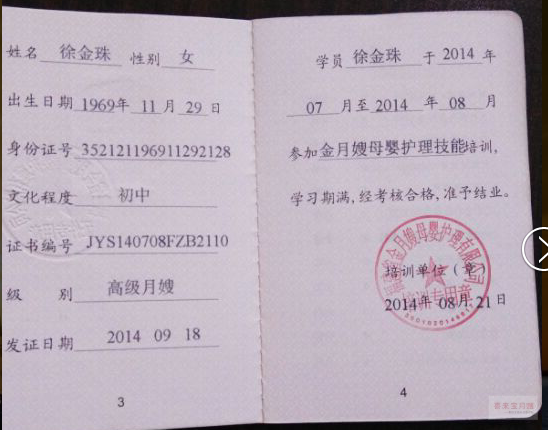 姓名 徐金珠 性别 女
出生日期 1969年 11 月 29 日
身份证号 352121196911292128
文化程度 初中
证书编号 JYS140708FZB2110
级 别 高级月嫂
发证日期 2014 09 18
3
学员 徐金珠 于 2014 年
07 月至 2014 年 08 月
参加金月嫂母婴护理技能培训,
学习期满,经考核合格,准予结业。
金月嫂母婴护理有限公司
培训单位(章)
培训专用章
2014年 08月 21日
4